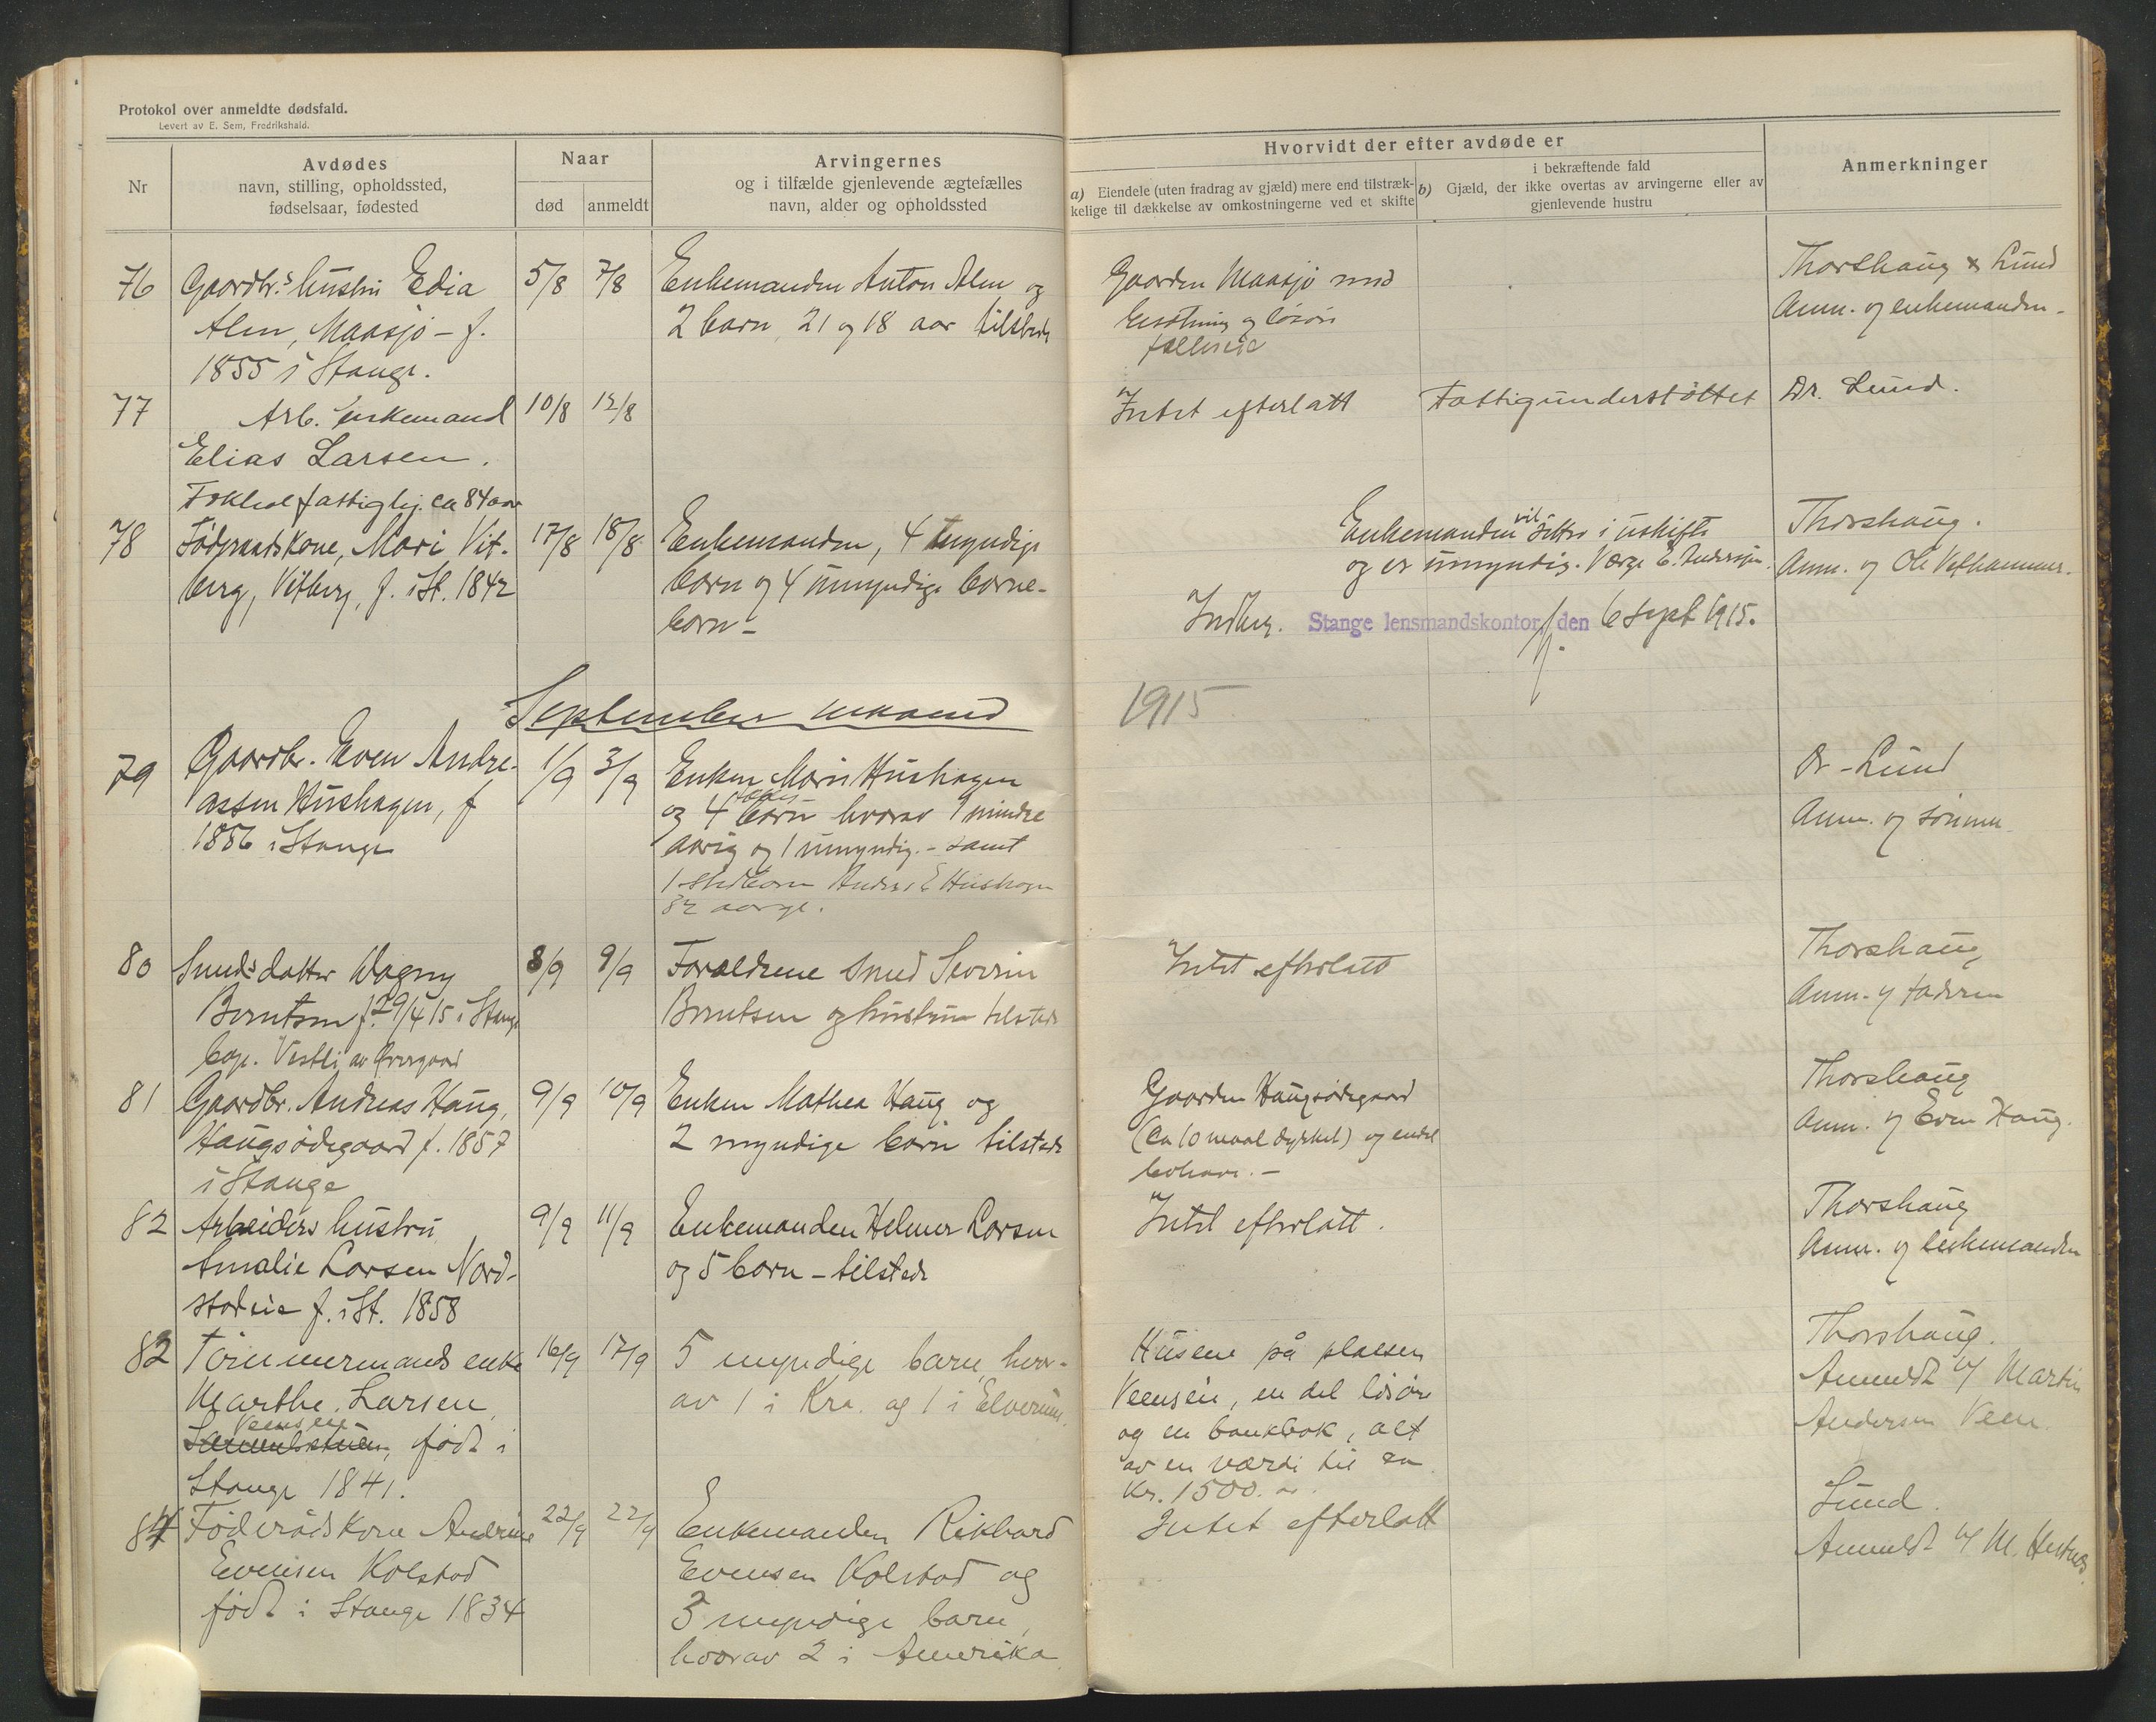 Protokol over anmeldte dødsfald.
Levert av E. Sem, Fredrikshald.
Nr
Avdødes
navn, stilling, opholdssted,
fødselsaar, fødested
Naar
død
anmeldt
Arvingernes
og i tilfælde gjenlevende ægtefælles
navn, alder og opholdssted
Hvorvidt der efter avdøde er
a) Eiendele (uten fradrag av gjæld) mere end tilstræk-
kelige til dækkelse av omkostningerne ved et skifte
i bekræftende fald
b) Gjæld, der ikke overtas av arvingerne eller av
gjenlevende hustru
Anmerkninger
76
Gaardbr.s hustru Edia
Alm, Maasjø - f.
1855 i Stange.
5/8
7/8
Enkemanden Anton Alm og
2 børn, 21 og 18 aar tilstede
Gaarden Maasjø med
besætning og løsøre
fælleseie
Thorshaug x Lund
Anm. og enkemanden -
77
Arb. enkemand
Elias Larsen.
Fokhol fattighj. ca 84 aar
10/8
12/8
Intet efterlatt
Fattigunderstøttet
Dr. Lund.
78
Føderaadskone, Mari Vit-
berg, Vitberg, f. i St. 1842
17/8
18/8
Enkemanden, 4 myndige
børn og 4 umyndige børne-
børn -
Enkemanden vil sitte i uskifte
og er umyndig. Værge E. Anderssen.
Thorshaug.
Anm. og Ole Vethammer.
Indber. Stange lensmandskontor, den 6 Sept 1915.
September maaned
1915
79
Gaardbr. Even Andre-
assen Hushagen, f
1856 i Stange
1/9
3/9
Enken Mari Hushagen
og 4 fælles børn hvorav 1 mindre
aarig og 1 umyndig. - samt
1 stedbarn Anders E Hushagen
32 aar gl.
Dr - Lund
Anm. og sønnen
80
Smeds datter Dagny
Berntsen f. 29/4 15 i Stange
bop. Vestli av Øvergaard
8/9
9/9
Forældrene smed Severin
Berntsen og hustru tilstede
Intet efterlatt
Thorshaug
Anm. af faderen
81
Gaardbr. Andreas Haug,
Haugsødegaard f. 1857
i Stange
9/9
10/9
Enken Mathea Haug og
2 myndige børn tilstede
Gaarden Haugsødegaard
(ca 10 maal dyrket) og endel
bohave. -
Thorshaug
Anm. af Even Haug.
82
Arbeiders hustru
Amalie Larsen Nord-
stadeie f. i St. 1858
9/9
11/9
Enkemanden Helmer Larsen
og 5 børn - tilstede
Intet efterlatt.
Thorshaug
Anm. af Enkemanden
83
Tømmermands enke
Marthe Larsen
Veenseie
født i
Stange 1841.
16/9
17/9
5 myndige barn, hvor-
av 1 i Kra. og 1 i Elverum.
Husene på plassen
Veenseie, en del løsøre
og en bankbok, alt
av en værdi til ca
Kr. 1500.
Thorshaug.
Anmeldt af Martin
Andersen Veen.
84
Føderådskone Andrine
Evensen Kolstad
født i Stange 1834
22/9
22/9
Enkemanden Rikhard
Evensen Kolstad og
3 myndige barn,
hvorav 2 i Amerika
Intet efterlatt
Lund.
Anmeldt af M.